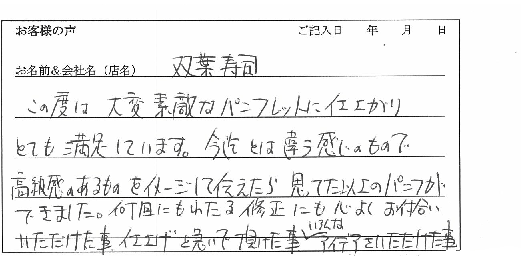 お客様の声 ご記入日 年 月 日
お名前&会社名(店名) 双葉寿司
この度は 大変 素敵なパンフレットに仕上がり
とても 満足しています。今迄とは違う感じのもので
高級感のあるものをイメージして伝えたら 思ってた以上のパンフが
できました。何回にもわたる修正にも心よくお付合い
いただけた事 仕上げを急いで頂けた事 いろんなアイデアをいただけた事